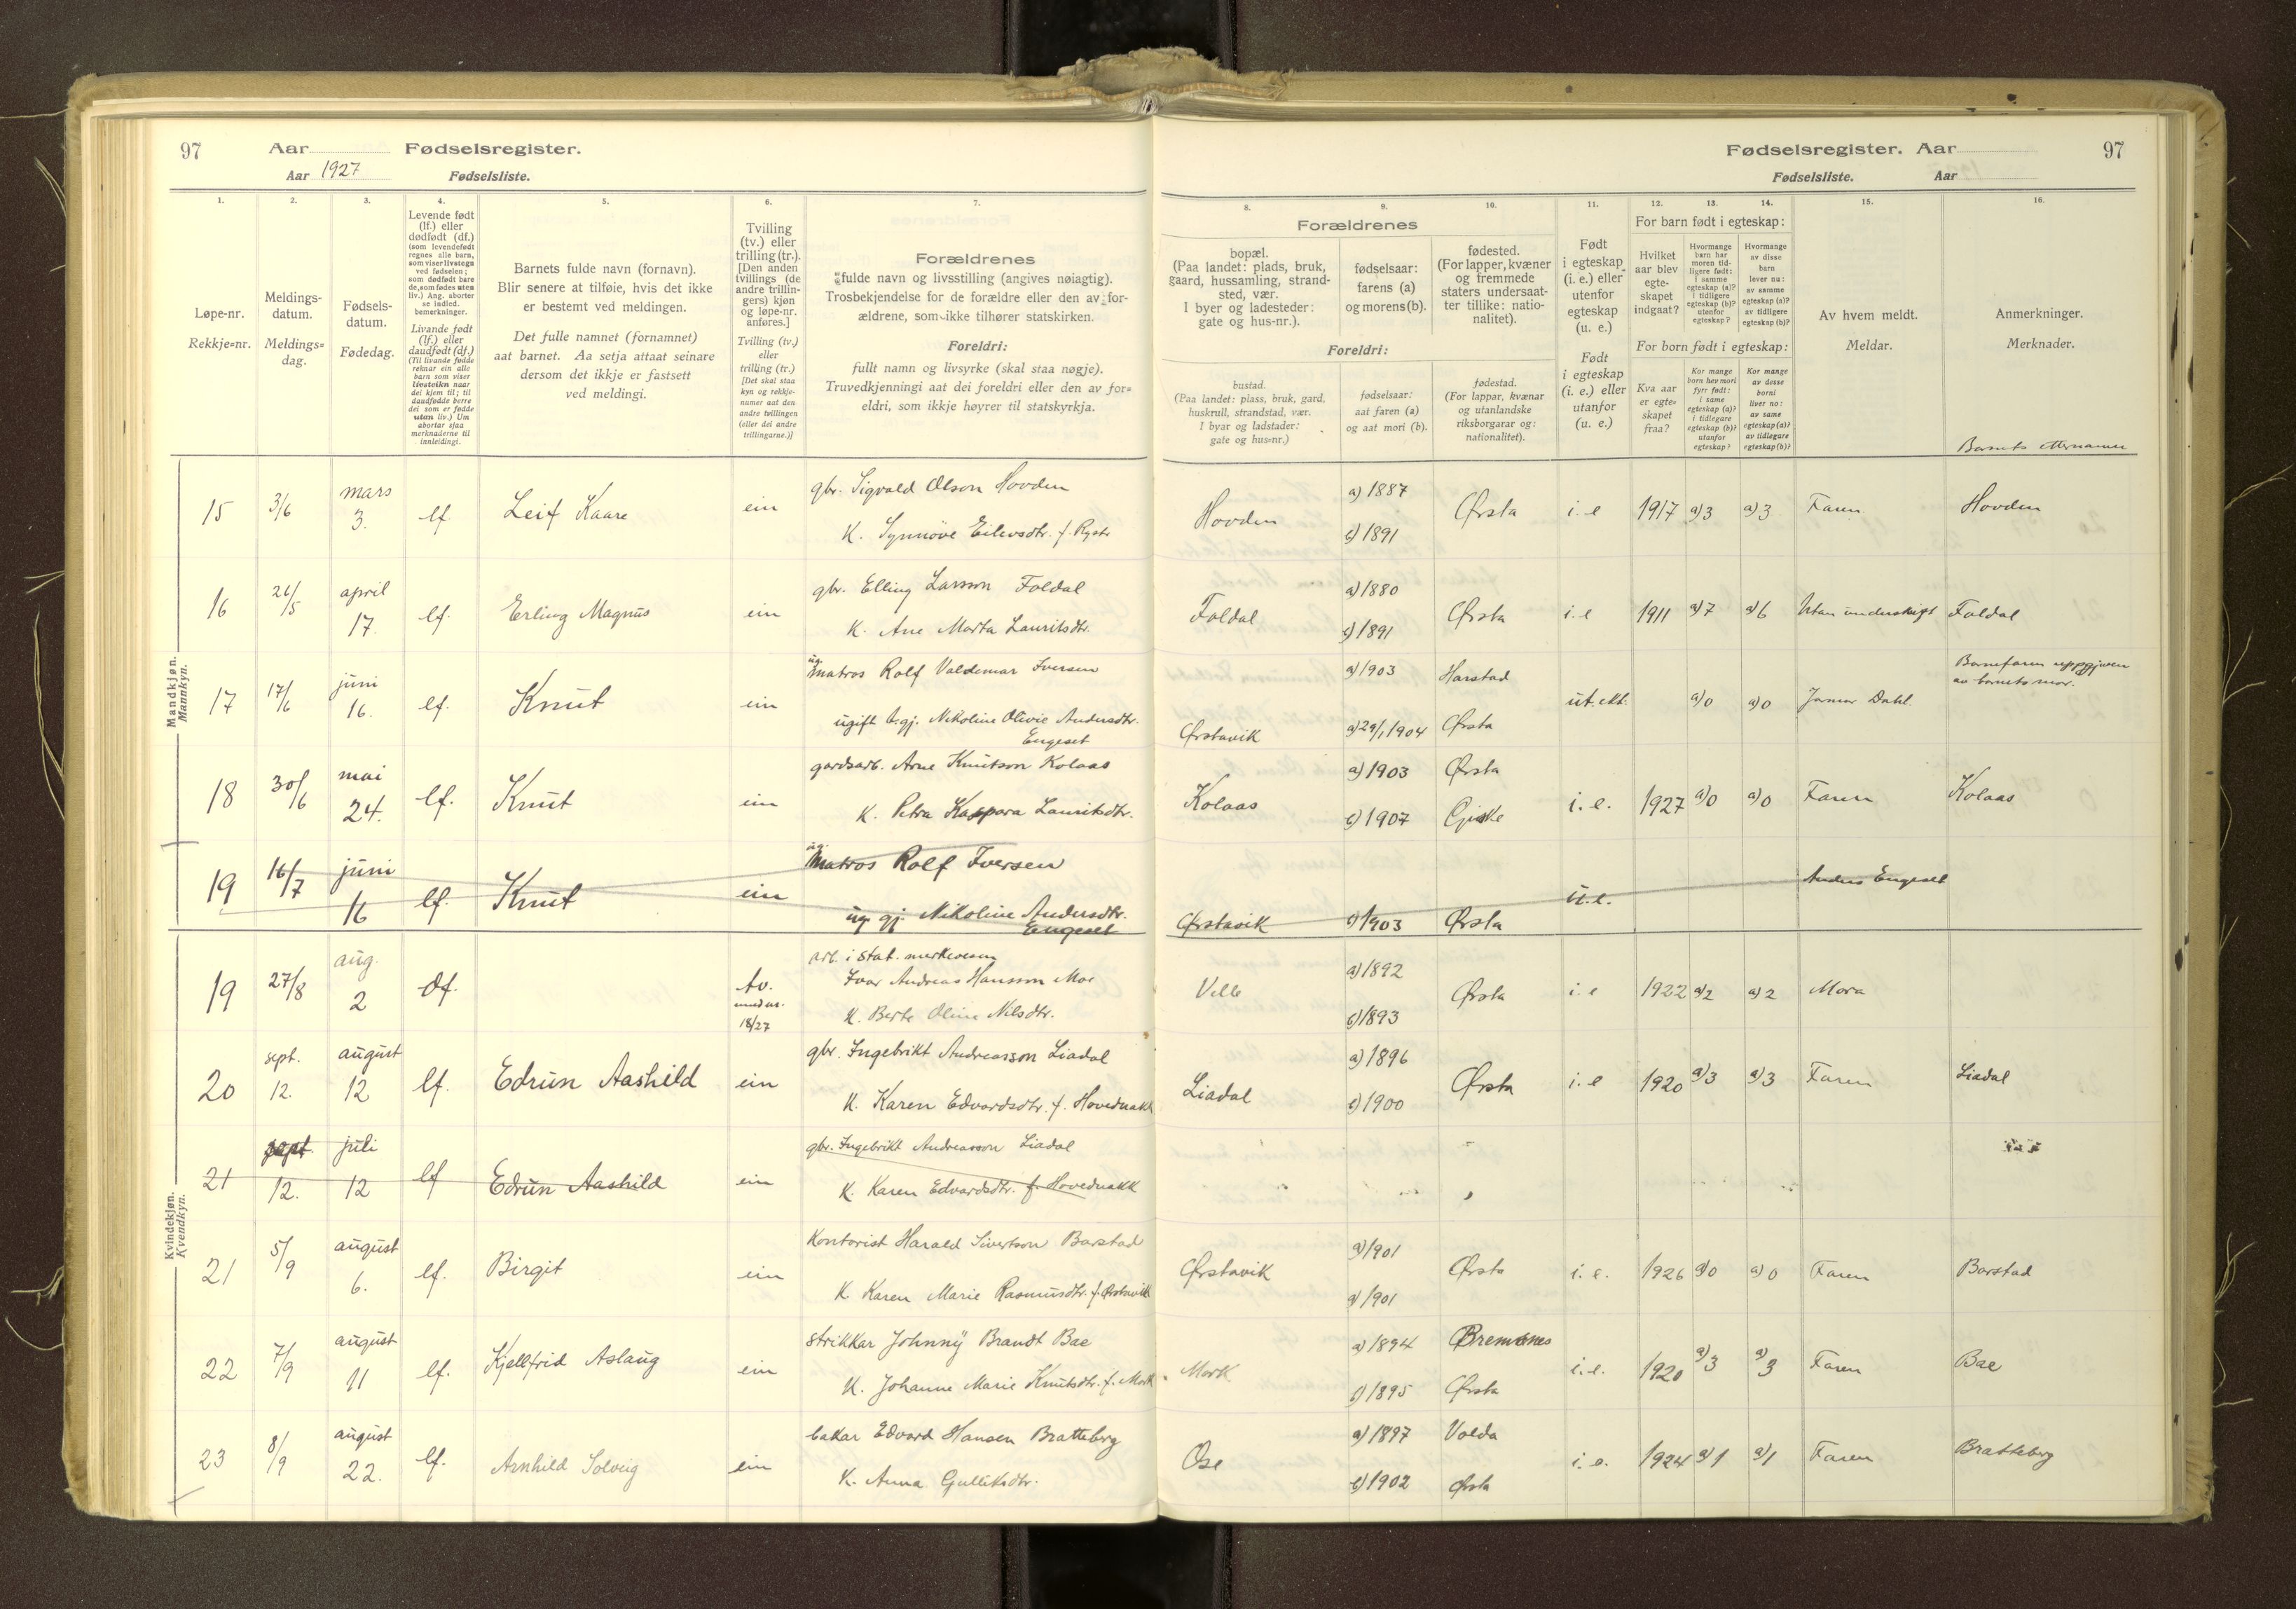 97 Aar Fødselsregister.
Aar 1927 Fødselsliste.
Fødselsregister. Aar 97
Fødselsliste. Aar
1. 2. 3. 4. 5. 6. 7.
Løpe-nr.
Rekkje=nr.
Meldings-
datum.
Meldings=
dag.
Fødsels-
datum.
Fødedag.
Levende født
(lf.) eller
dødfødt (df.)
(som levendefødt
regnes alle barn,
som viser livstegn
ved fødselen;
som dødfødt bare
de, som fødes uten
liv.) Ang. aborter
se indled.
bemerkninger.
Livande født
(lf.) eller
daudfødt (df.)
(Til livande fødde
reknar ein alle
barn som viser
livsteikn naar
dei kjem til; til
daudfødde berre
dei som er fødde
utan liv.) Um
abortar sjaa
merknaderne til
innleidingi.
Barnets fulde navn (fornavn).
Blir senere at tilføie, hvis det ikke
er bestemt ved meldingen.
Det fulle namnet (fornamnet)
aat barnet. Aa setja attaat seinare
dersom det ikkje er fastsett
ved meldingi.
Tvilling
(tv.) eller
trilling (tr.).
[Den anden
tvillings (de
andre trillin-
gers) kjøn
og løpe-nr.
anføres.]
Tvilling (tv.)
eller
trilling (tr.)
[Det skal staa
kyn og rekkje-
numer aat den
andre tvillingen
(eller dei andre
trillingarne.)]
Forældrenes
fulde navn og livsstilling (angives nøiagtig).
Trosbekjendelse for de forældre eller den av for-
ældrene, som ikke tilhører statskirken.
Foreldri:
fullt namn og livsyrke (skal staa nøgje).
Truvedkjenningi aat dei foreldri eller den av for=
eldri, som ikkje høyrer til statskyrkja.
8. 9. 10. 11. 12. 13. 14. 15. 16.
Forældrenes
bopæl.
(Paa landet: plads, bruk,
gaard, hussamling, strand-
sted, vær.
I byer og ladesteder:
gate og hus-nr.).
fødselsaar:
farens (a)
og morens (b).
fødested.
(For lapper, kvæner
og fremmede
staters undersaat-
ter tillike: natio-
nalitet).
Foreldri:
bustad.
(Paa landet: plass, bruk, gard,
huskrull, strandstad, vær.
I byar og ladstader:
gate og hus=nr.)
fødselsaar:
aat faren (a)
og aat mori (b).
fødestad.
(For lappar, kvænar
og utanlandske
riksborgarar og:
nationalitet).
Født
i egteskap
(i. e.) eller
utenfor
egteskap
(u. e.)
Født
i egteskap
(i. e.) eller
utanfor
(u. e.)
For barn født i egteskap:
Hvilket
aar blev
egte-
skapet
indgaat?
Hvormange
barn har
moren tid-
ligere født:
i samme
egteskap (a)?
i tidligere
egteskap (b)?
utenfor
egteskap?
Hvormange
av disse
barn
lever nu:
av samme
egteskap (a)?
av tidligere
egteskap (b)?
For born født i egteskap:
Kva aar
er egte=
skapet
fraa?
Kor mange
born hev mori
fyrr født:
i same
egteskap (a)?
i tidlegare
egteskap (b)?
utanfor
egteskap?
Kor mange
av desse
borni
liver no:
av same
egteskap (a)?
av tidlegare
egteskap (b)?
Av hvem meldt.
Meldar.
Anmerkninger.
Merknader.
Barnets etternamn
Mandkjøn.
Mannkyn.
15 3/6 mars 3. lf. Leif Kaare ein gbr. Sigvald Olson Hovden
K. Synnøve Eilevsdtr. f.
Hovden a) 1887 b) 1891 Ørsta i. e 1917 a) 3 a) 3 Faren Hovden
16 26/5 april 17. lf. Erling Magnus ein gbr. Elling Larsson Foldal
K. Ane Marta Lauritsdtr.
Foldal a) 1880 b) 1891 Ørsta i. e 1911 a) 7 a) 6 Utan underskrift Foldal
17 17/6 juni 16. lf. Knut ein ug. matros Rolf Valdemar Iversen
ugift b.gj. Nikoline Olivie Andersdtr.
Engeset
Ørstavik a) 1903 29/1 1904 Harstad Ørsta ut. ekt. a) 0 a) 0 Dahl Barnefaren uppgjeven
av barnets mor.
18 30/6 mai 24. lf. Knut ein gardsarb. Arne Knutson Kolaas
K. Petra Kaspara Lauritsdtr.
Kolaas a) 1903 b) 1907 Ørsta Giske i. e. 1927 a) 0 a) 0 Faren Kolaas
19 16/7 juni 16 lf. Knut ein ug. Matros Rolf Iversen
ug. gj. Nikoline Andersdtr.
Engeset
Ørstavik b) 1903 Ørsta u. e. Anders Engeset
Kvindekjøn.
Kvendkyn.
19 27/8 aug. 2 df. tv. 18/27 arb. i stat. merkevesen
Ivar Andreas Hansson Moe
K. Berte Oline Nilsdtr.
Velle a) 1892 b) 1893 Ørsta i. e 1922 a) 2 a) 2 Mora
20 sept. 12. august 12 lf. Edrun Aashild ein gbr. Ingebrikt Andreasson Liadal
K. Karen Edvardsdtr. f. Hovednakk
Liadal a) 1896 b) 1900 Ørsta i. e 1920 a) 3 a) 3 Faren Liadal
21 sept. 12. juli 12 lf Edrun Aashild ein gbr. Ingebrikt Andreasson Liadal
K. Karen Edvardsdtr. f. Hovednakk
21 5/9 august 6. lf. Birgit ein Kontorist Harald Sivertson Barstad
K. Karen Marie Rasmusdtr. f. Ørstavik
Ørstavik a) 1901 b) 1901 Ørsta i. e. 1926 a) 0 a) 0 Faren Barstad
22 7/9 august 11 lf. Kjellfrid Aslaug ein strikkar Johnny Brandt Bae
K. Johanne Marie Knutsdtr. f. Mork
Mork a) 1894 b) 1895 Bremsnes Ørsta i. e. 1920 a) 3 a) 3 Faren Bae
23 8/9 august 22. lf. Arnhild Solveig ein bakar Edvard Hansen Bratteberg
K. Anna Gulliksdtr.
Ose a) 1897 b) 1902 Volda Ørsta i. e. 1924 a) 1 a) 1 Faren Bratteberg